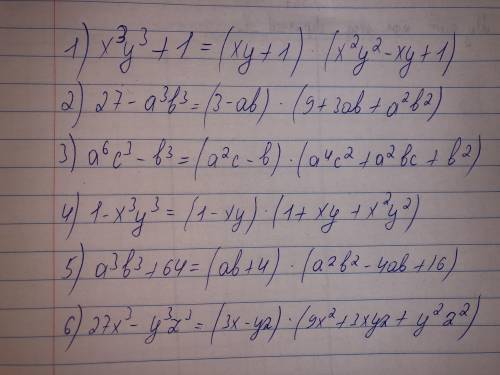 1) x³y³ + 1 = (xy + 1) · (x²y² - xy + 1)
2) 27 - a³b³ = (3 - ab) · (9 + 3ab + a²b²)
3) a⁶c³ - b³ = (a²c - b) · (a⁴c² + a²bc + b²)
4) 1 - x³y³ = (1 - xy) · (1 + xy + x²y²)
5) a³b³ + 64 = (ab + 4) · (a²b² - 4ab + 16)
6) 27x³ - y³z³ = (3x - yz) · (9x² + 3xyz + y²z²)